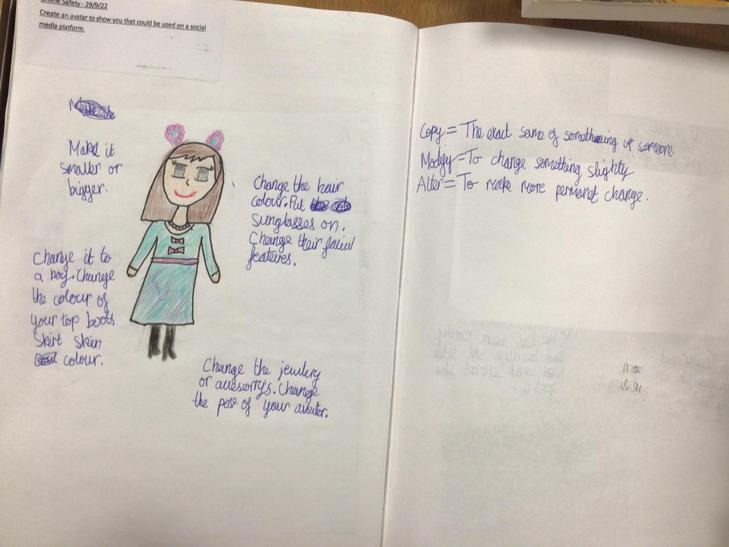 Online Safety - 29/9/22
Create an avatar to show you that could be used on a social
media platform.
Make it
smaller or
bigger.
Change the hair
colour. Put
sunglasses on.
Change their facial
features.
Change it to
a boy. Change
the colour of
your top boots
skirt skin
colour.
Change the jewlery
or accesorrys. Change
the pose of your avater.
Copy = The exact same of something or someone.
Modify = To change something slightly
Alter = To make more permanat change.